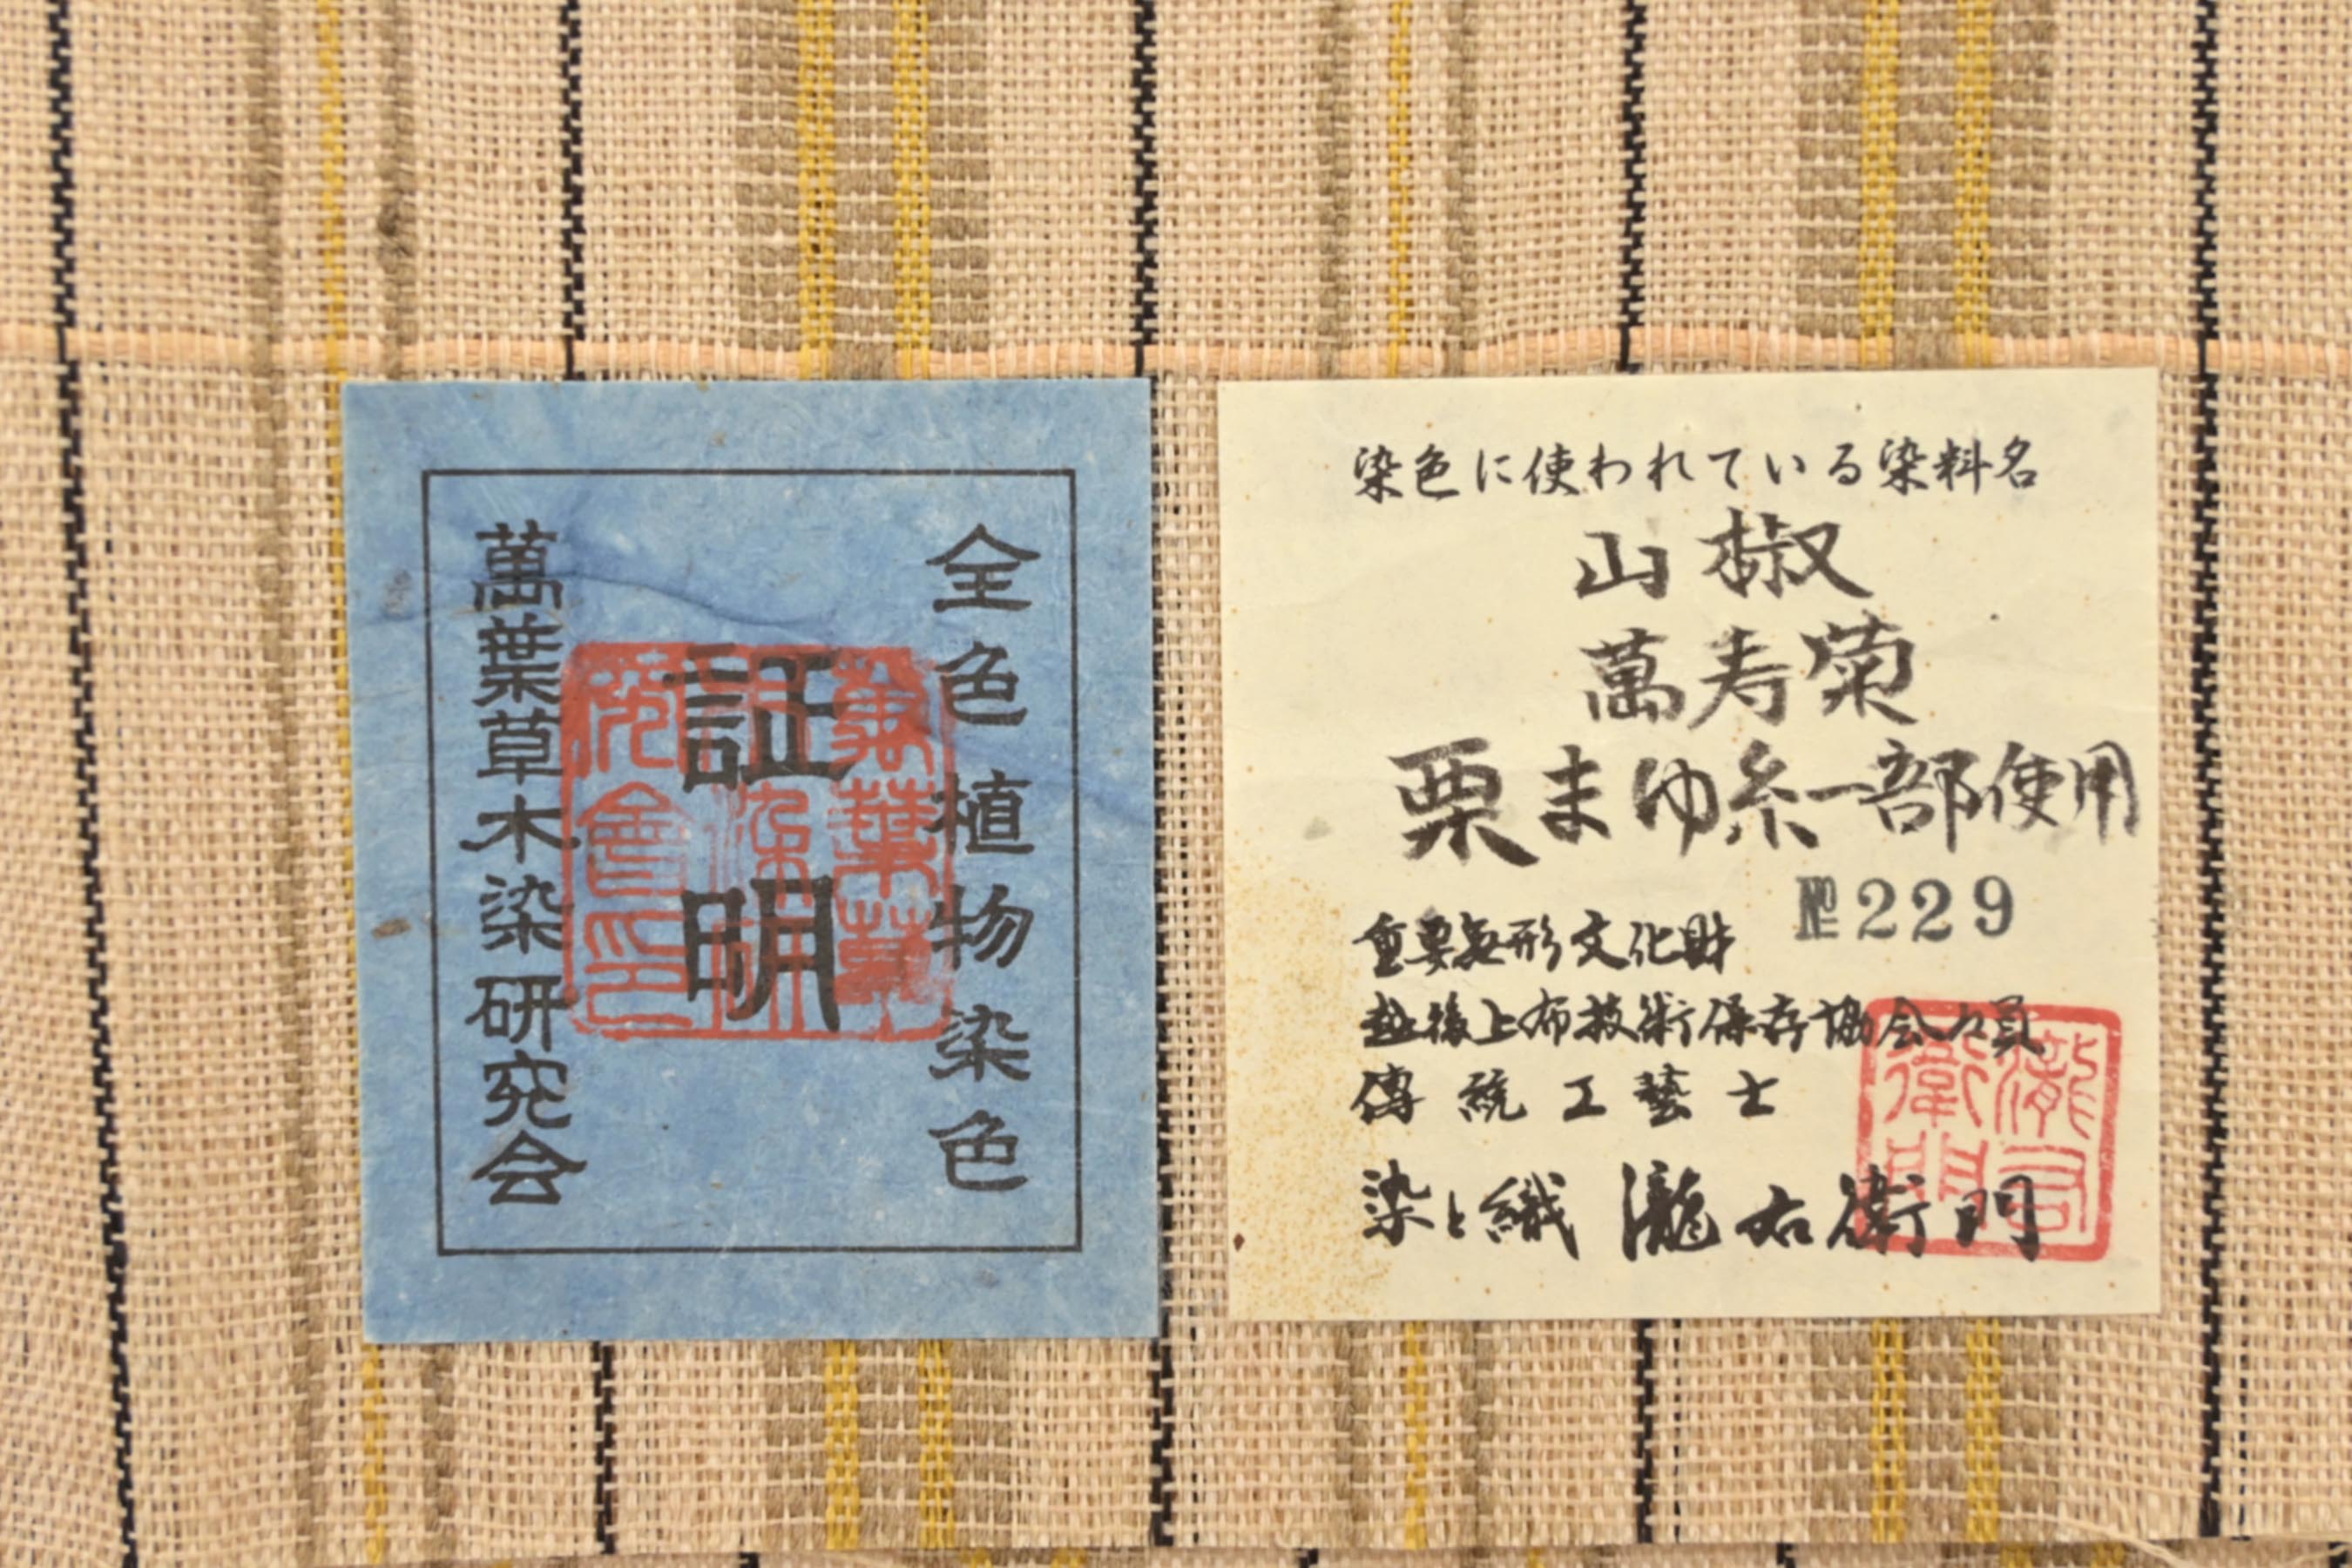 全色植物染色
証明
萬葉草木染研究会
染色に使われている染料名
山椒
萬寿菊
栗まゆ糸一部使用
№229
重要無形文化財
越後上布技術保存協会々員
傳統工藝士
染と織 瀧右衛門